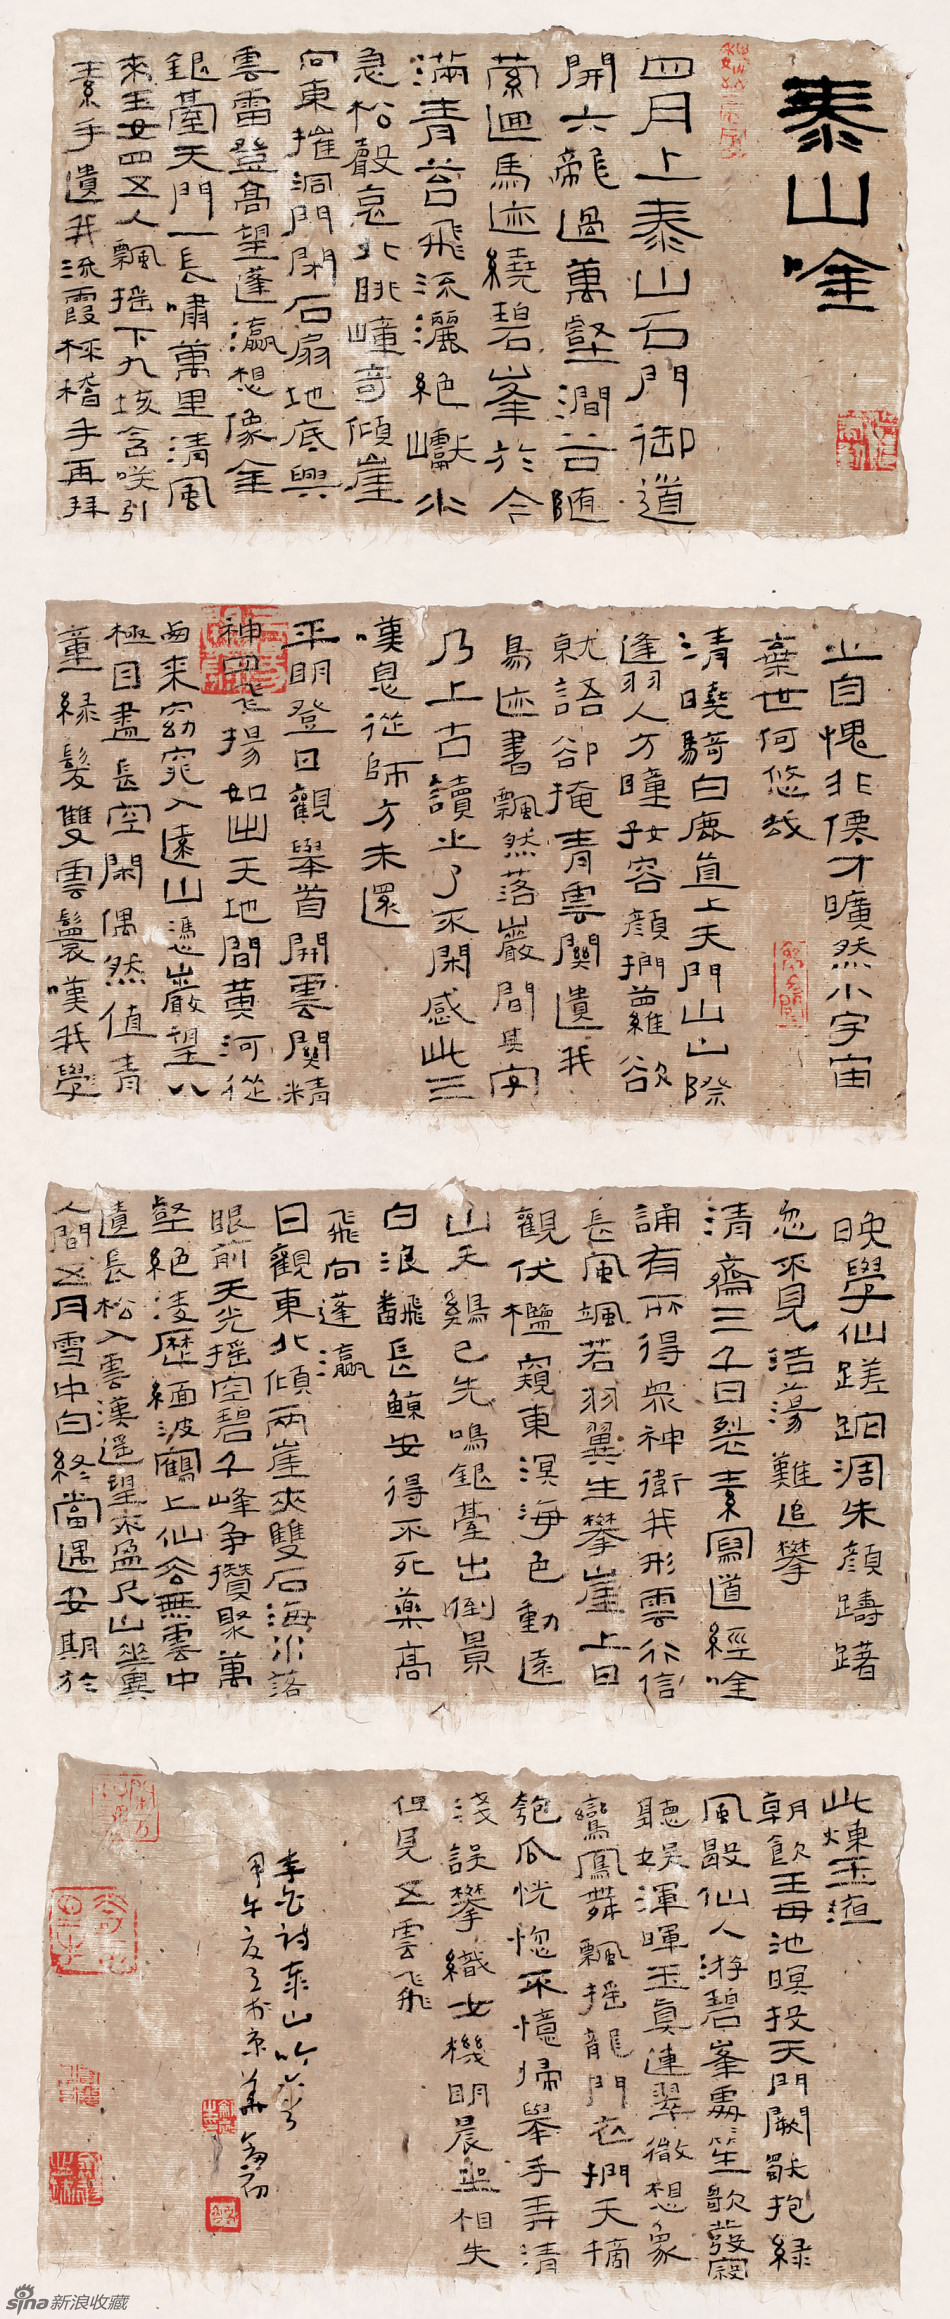 泰山唫
四月上泰山石門御道
開六龍過萬壑澗谷隨
縈迴馬迹繞碧峯於今
滿青苔飛流灑絕巘水
急松聲哀北眺崿奇傾崖
向東摧洞門閉石扇地底興
雲雷登高望蓬瀛想像金
銀臺天門一長嘯萬里清風
來玉女四五人飄搖下九垓含咲引
素手遺我流霞杯稽手再拜
之自愧非僊才曠然小宇宙
棄世何悠哉
清曉騎白鹿直上天門山山際
逢羽人方瞳好容顏捫蘿欲
就語卻掩青雲關遺我
鳥迹書飄然落巖間其字
乃上古讀之了不閑感此三
嘆息從師方未還
平明登日觀舉首開雲關精
神四飛揚如出天地間黃河從
西來窈窕入遠山憑巖望八
極目盡長空閑偶然值青
童綠髮雙雲鬟嘆我學
晚學仙蹉跎凋朱顏躊躇
忽不見浩蕩難追攀
清齋三千日裂素寫道經唫
誦有所得眾神衛我形雲行信
長風颯若羽翼生攀崖上日
觀伏檻窺東溟海色動遠
山天鷄已先鳴銀臺出倒景
白浪翻長鯨安得不死藥高
飛向蓬瀛
日觀東北傾兩崖夾雙石海水落
眼前天光搖空碧千峰爭攢聚萬
壑絕淩歷緬彼鶴上仙去無雲中
遺長松入雲漢遥望不盈尺山花異
人間五月雪中白終當遇安期於
此煉玉液
朝飲王母池暝投天門闕獨抱綠
綺
風歇仙人游碧峯處處笙歌發寂
聽娛渾暉玉真連翠微想象
鸞鳳舞飄搖龍門衣捫天摘
匏瓜恍惚不憶歸舉手弄清
淺誤攀織女機明晨坐相失
但見五雲飛
李白詩泰山吟六首
甲午夏日於京華
新浪收藏